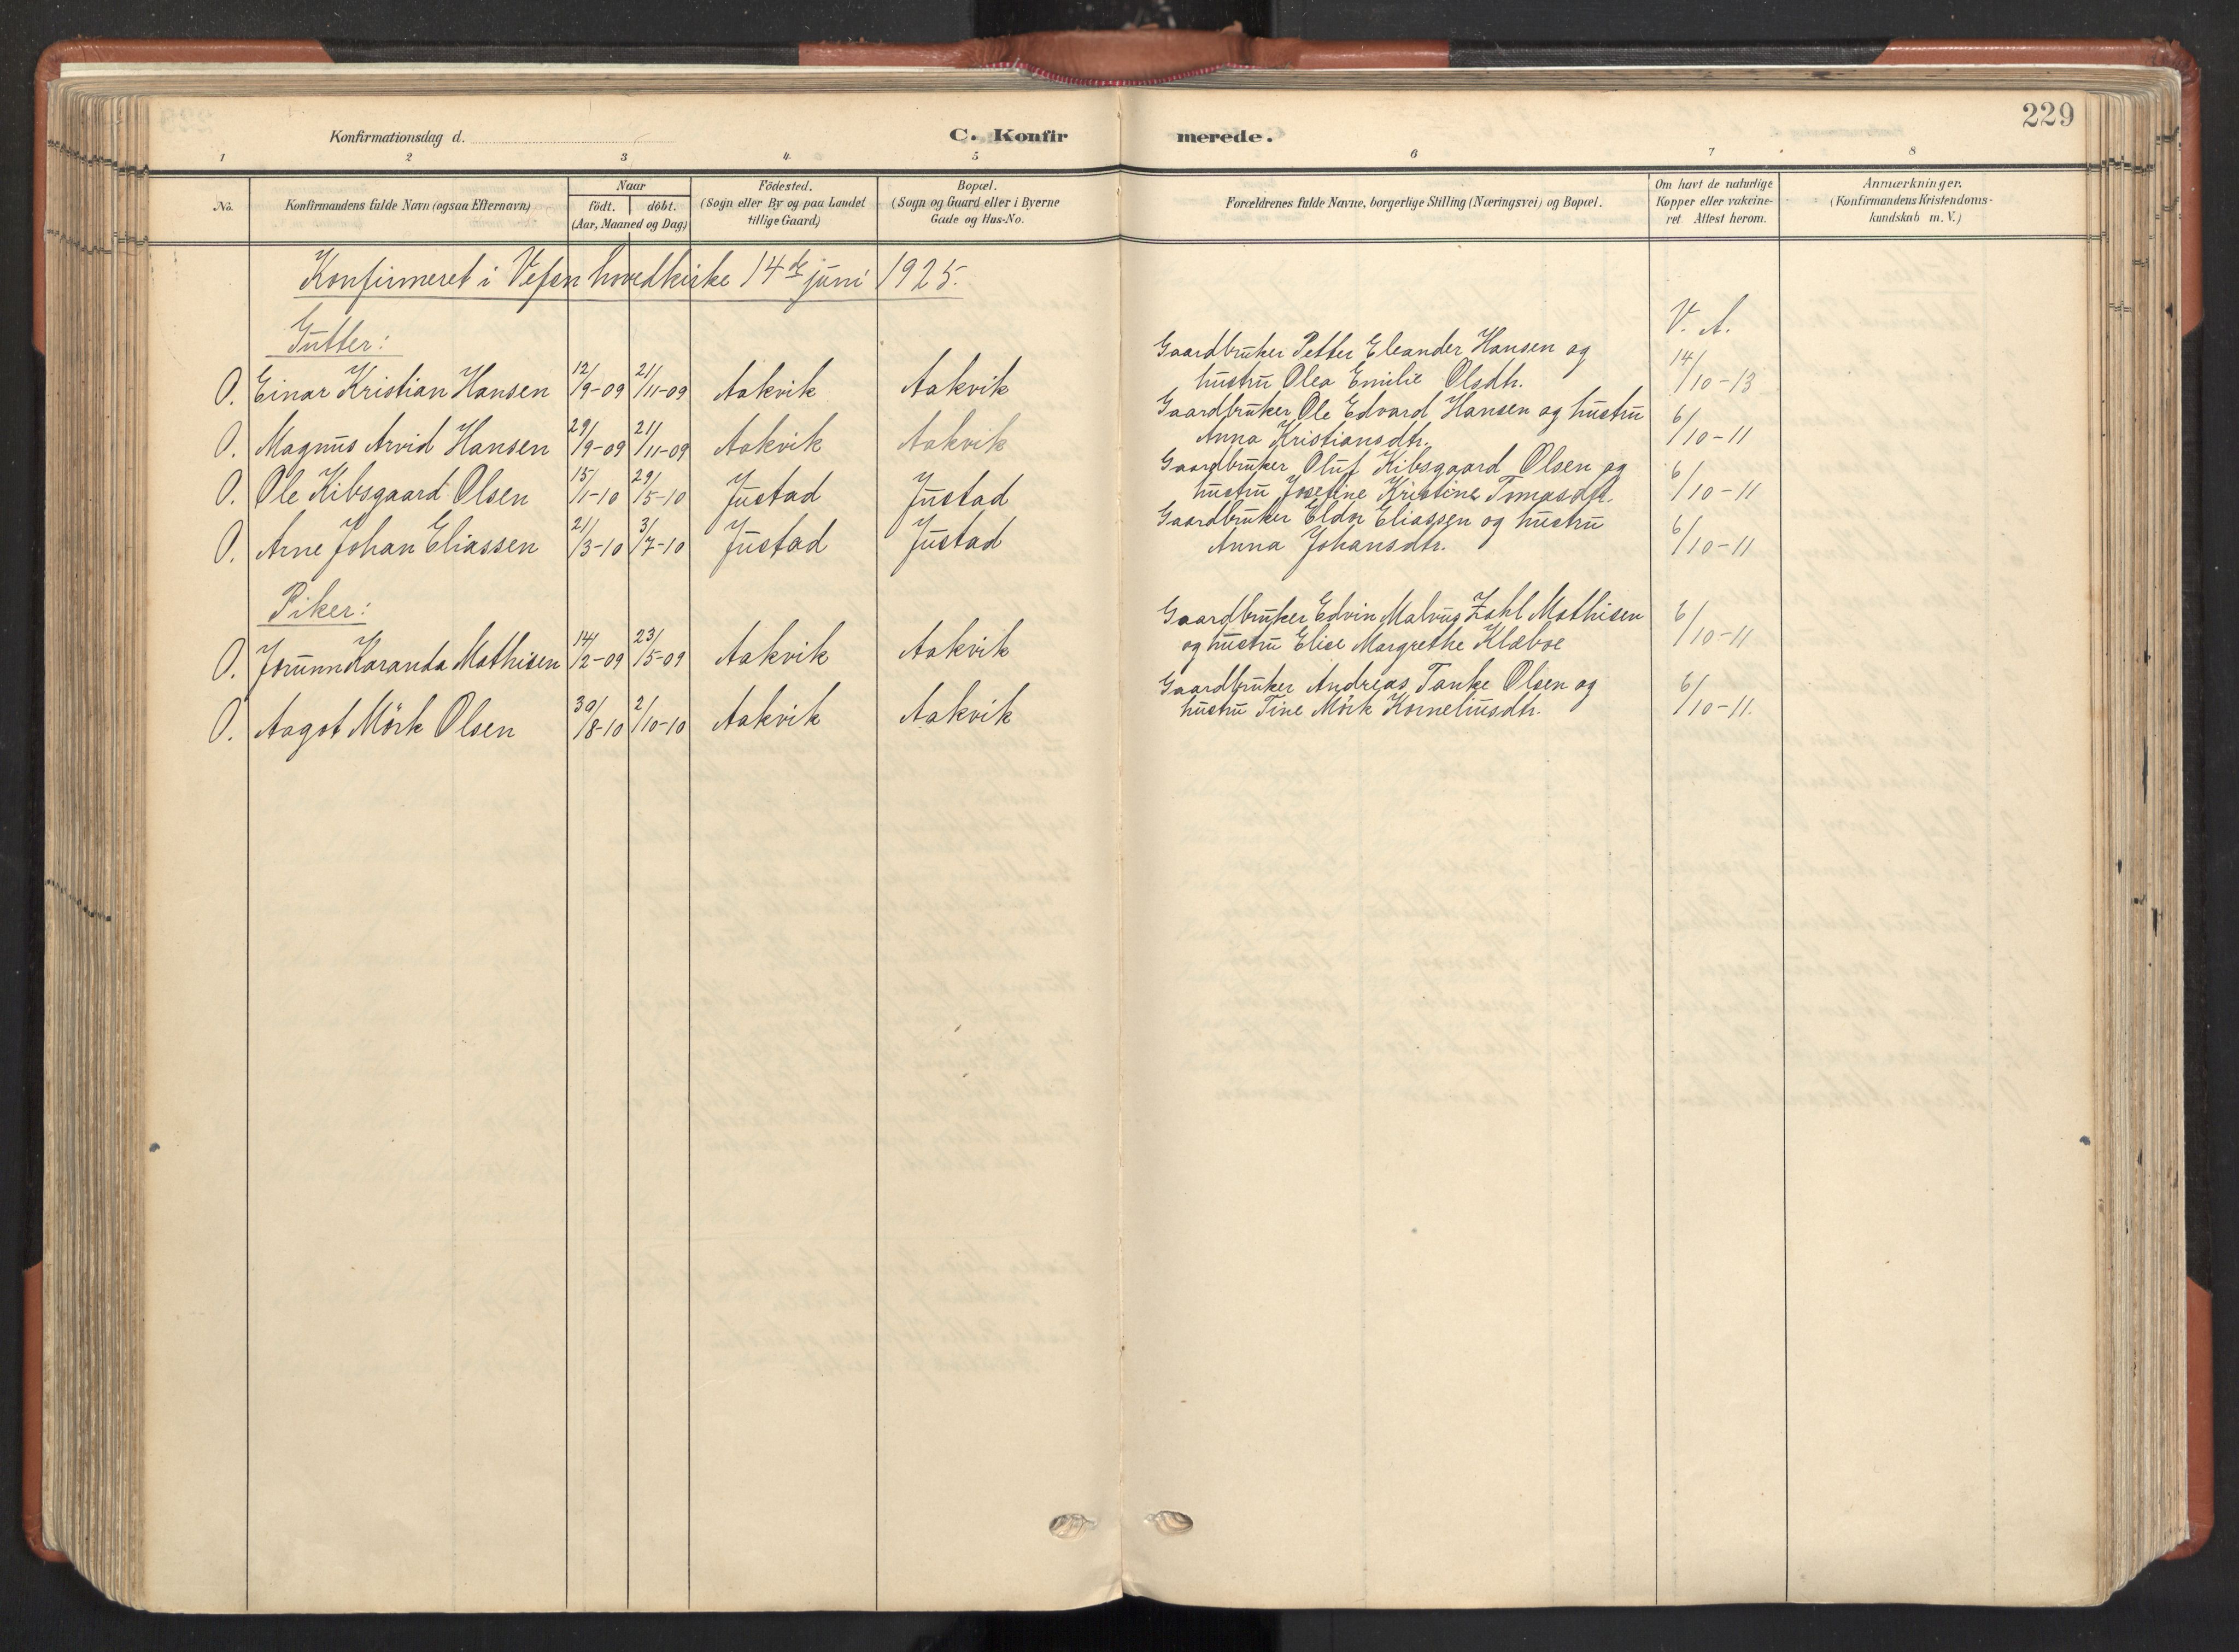 229
Konfirmationsdag d.
C. Konfirmerede.
1 2 3 4 5 6 7 8
No.
Konfirmandens fulde Navn (ogsaa Efternavn)
Naar
födt. döbt.
(Aar, Maaned og Dag)
Födested.
(Sogn eller By og paa Landet
tillige Gaard)
Bopæl.
(Sogn og Gaard eller i Byerne
Gade og Hus-No.
Forældrenes fulde Navne, borgerlige Stilling (Næringsvei) og Bopæl.
Om havt de naturlige
Kopper eller vakcine-
ret Attest herom.
Anmærkninger.
(Konfirmandens Kristendoms-
kundskab m. V.)
Konfirmeret i Vefsn hovedkirke 14de juni 1925.
V. A.
Gutter:
O. Einar Kristian Hansen 12/9-09 21/11-09 Aakvik Aakvik
Gaardbruker Petter Eleander Hansen og
hustru Olea Emilie Olsdtr. 14/10-13
O. Magnus Arvid Hansen 29/9-09 21/11-09 Aakvik Aakvik
Gaardbruker Ole Edvard Hansen og hustru
Anna Kristiansdtr. 6/10-11
O. Ole Kibsgaard Olsen 15/1-10 29/5-10 Justad Justad
Gaardbruker Oluf Kibsgaard Olsen og
hustru Josefine Kristine Tomasdtr. 6/10-11
O. Arne Johan Eliassen 21/3-10 3/7-10 Justad Justad
Gaardbruker Eldor Eliassen og hustru
Anna Johansdtr. 6/10-11
Piker:
O. Jorunn Karanda Mathisen 14/2-09 23/5-09 Aakvik Aakvik
Gaardbruker Edvin Malvus Zahl Mathisen
og hustru Elise Margrethe Klæboe 6/10-11
O. Aagot Mörk Olsen 30/8-10 2/10-10 Aakvik Aakvik
Gaardbruker Andreas Tanke Olsen og
hustru Tine Mörk Korneliusdtr. 6/10-11.